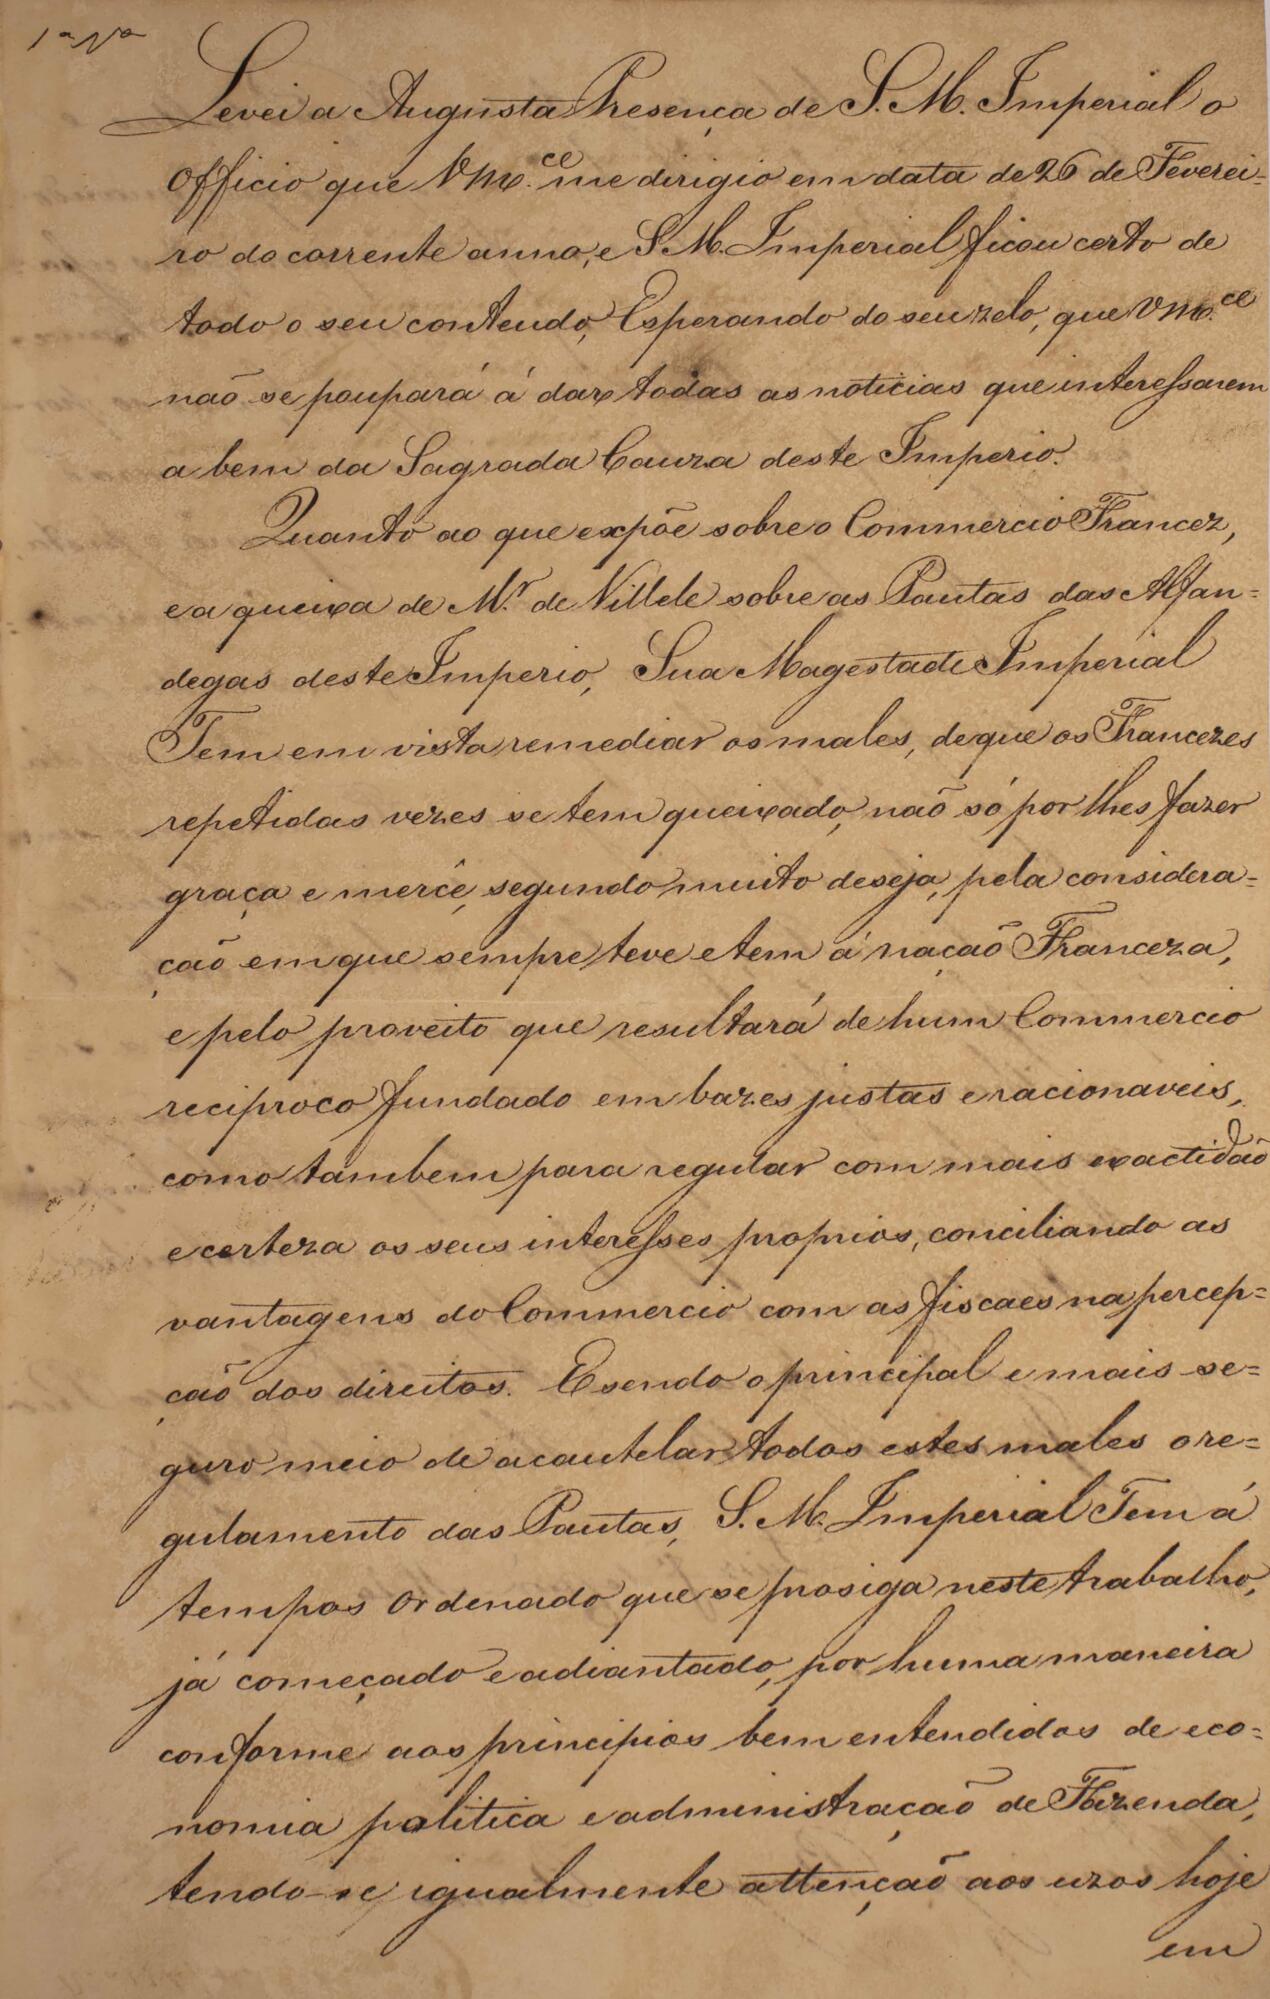 1ª Vª
Levei a Augusta Presença de S. M. Imperial o
Officio que Vm.ce me dirigio em data de 26 de Feverei=
ro do corrente anno, e S. M. Imperial ficou certo de
todo o seu contendo, Esperando do seu zelo, que Vm.ce
não se poupará á dar todas as noticias que interessarem
a bem da Sagrada Cauza deste Imperio.
Quanto ao que expõe sobre o Commercio Francez,
e a queixa de Mr. de Villele sobre as Pautas das Alfan=
degas deste Imperio, Sua Magestade Imperial
Tem em vista remediar os males, de que os Francezes
repetidas vezes se tem queixado, não só por lhes fazer
graça e mercê, segundo muito deseja, pela considera=
ção em que sempre teve e tem á nação Franceza,
e pelo proveito que resultará de hum Commercio
reciproco fundado em bazes justas e racionaveis,
como tambem para regular com mais exactidão
e certeza os seus interesses proprios, conciliando as
vantagens do Commercio com as fiscaes na percep=
ção dos direitos. E sendo o principal e mais se=
guro meio de acautelar todos estes males o re=
gulamento das Pautas, S. M. Imperial Tem á
tempos Ordenado que se prosiga neste trabalho,
já começado e adiantado, por huma maneira
conforme aos principios bem entendidos de eco=
nomia politica e administração de Fazenda,
tendo-se igualmente attenção aos uzos hoje
em